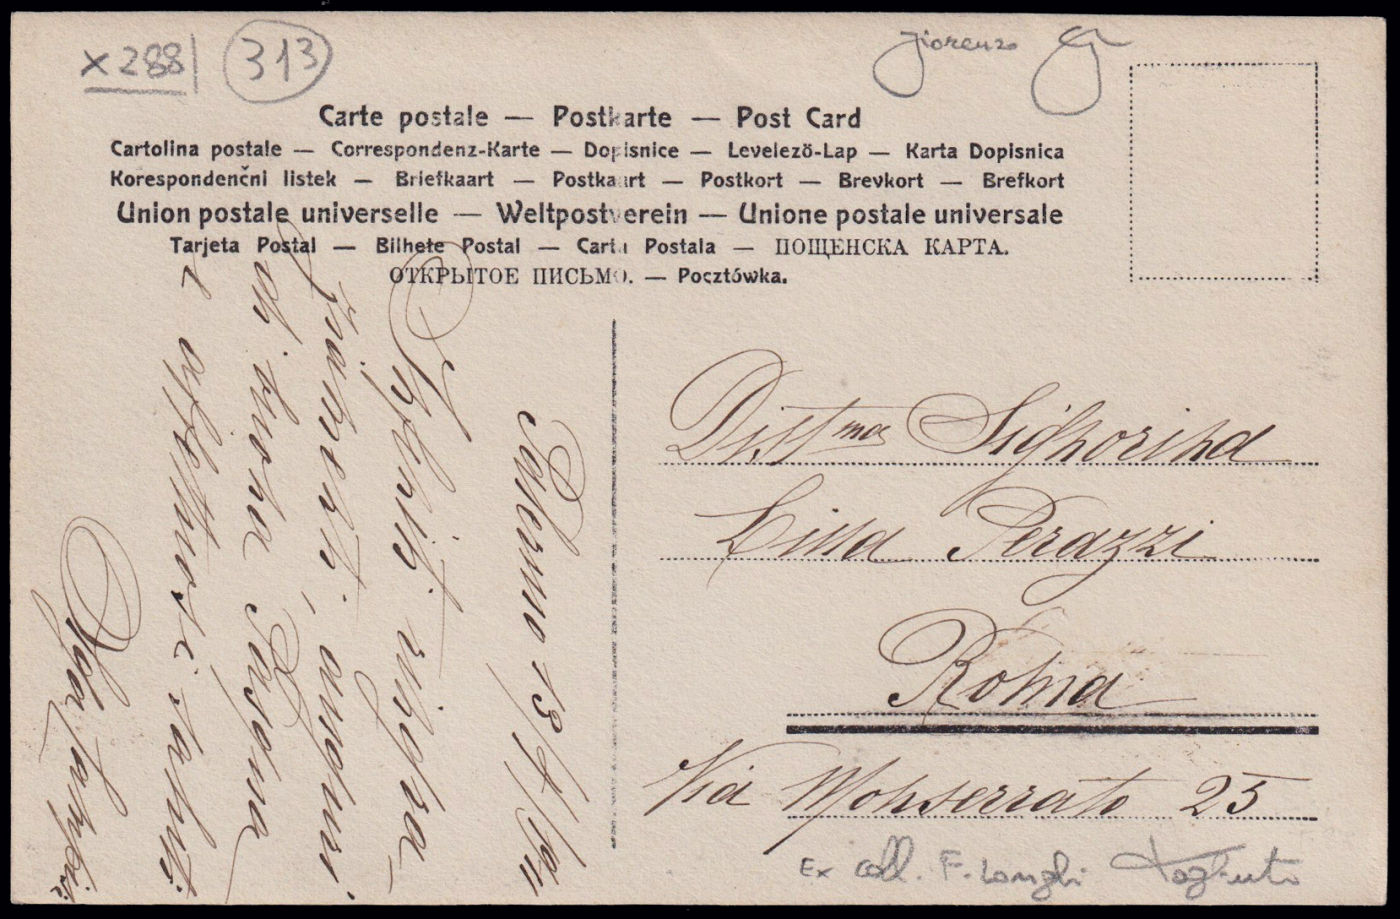 x 288 313
Fiorenzo
Carte postale — Postkarte — Post Card
Cartolina postale — Correspondenz-Karte — Dopisnice — Levelező-Lap — Karta Dopisnica
Korespondenčni listek — Briefkaart — Postkaart — Postkort — Brevkort — Brefkort
Union postale universelle — Weltpostverein — Unione postale universale
Tarjeta Postal — Bilhete Postal — Carta Postala — ПОЩЕНСКА КАРТА.
ОТКРЫТОЕ ПИСЬМО. — Pocztówka.
Palermo 13/4/1911
Infiniti ringra-
ziamenti, auguri
di buona Pasqua
e affettuosi saluti
Dist.ma Signorina
Lina Perazzi
Roma
Via Monserrato 25
Ex coll. F. Longhi